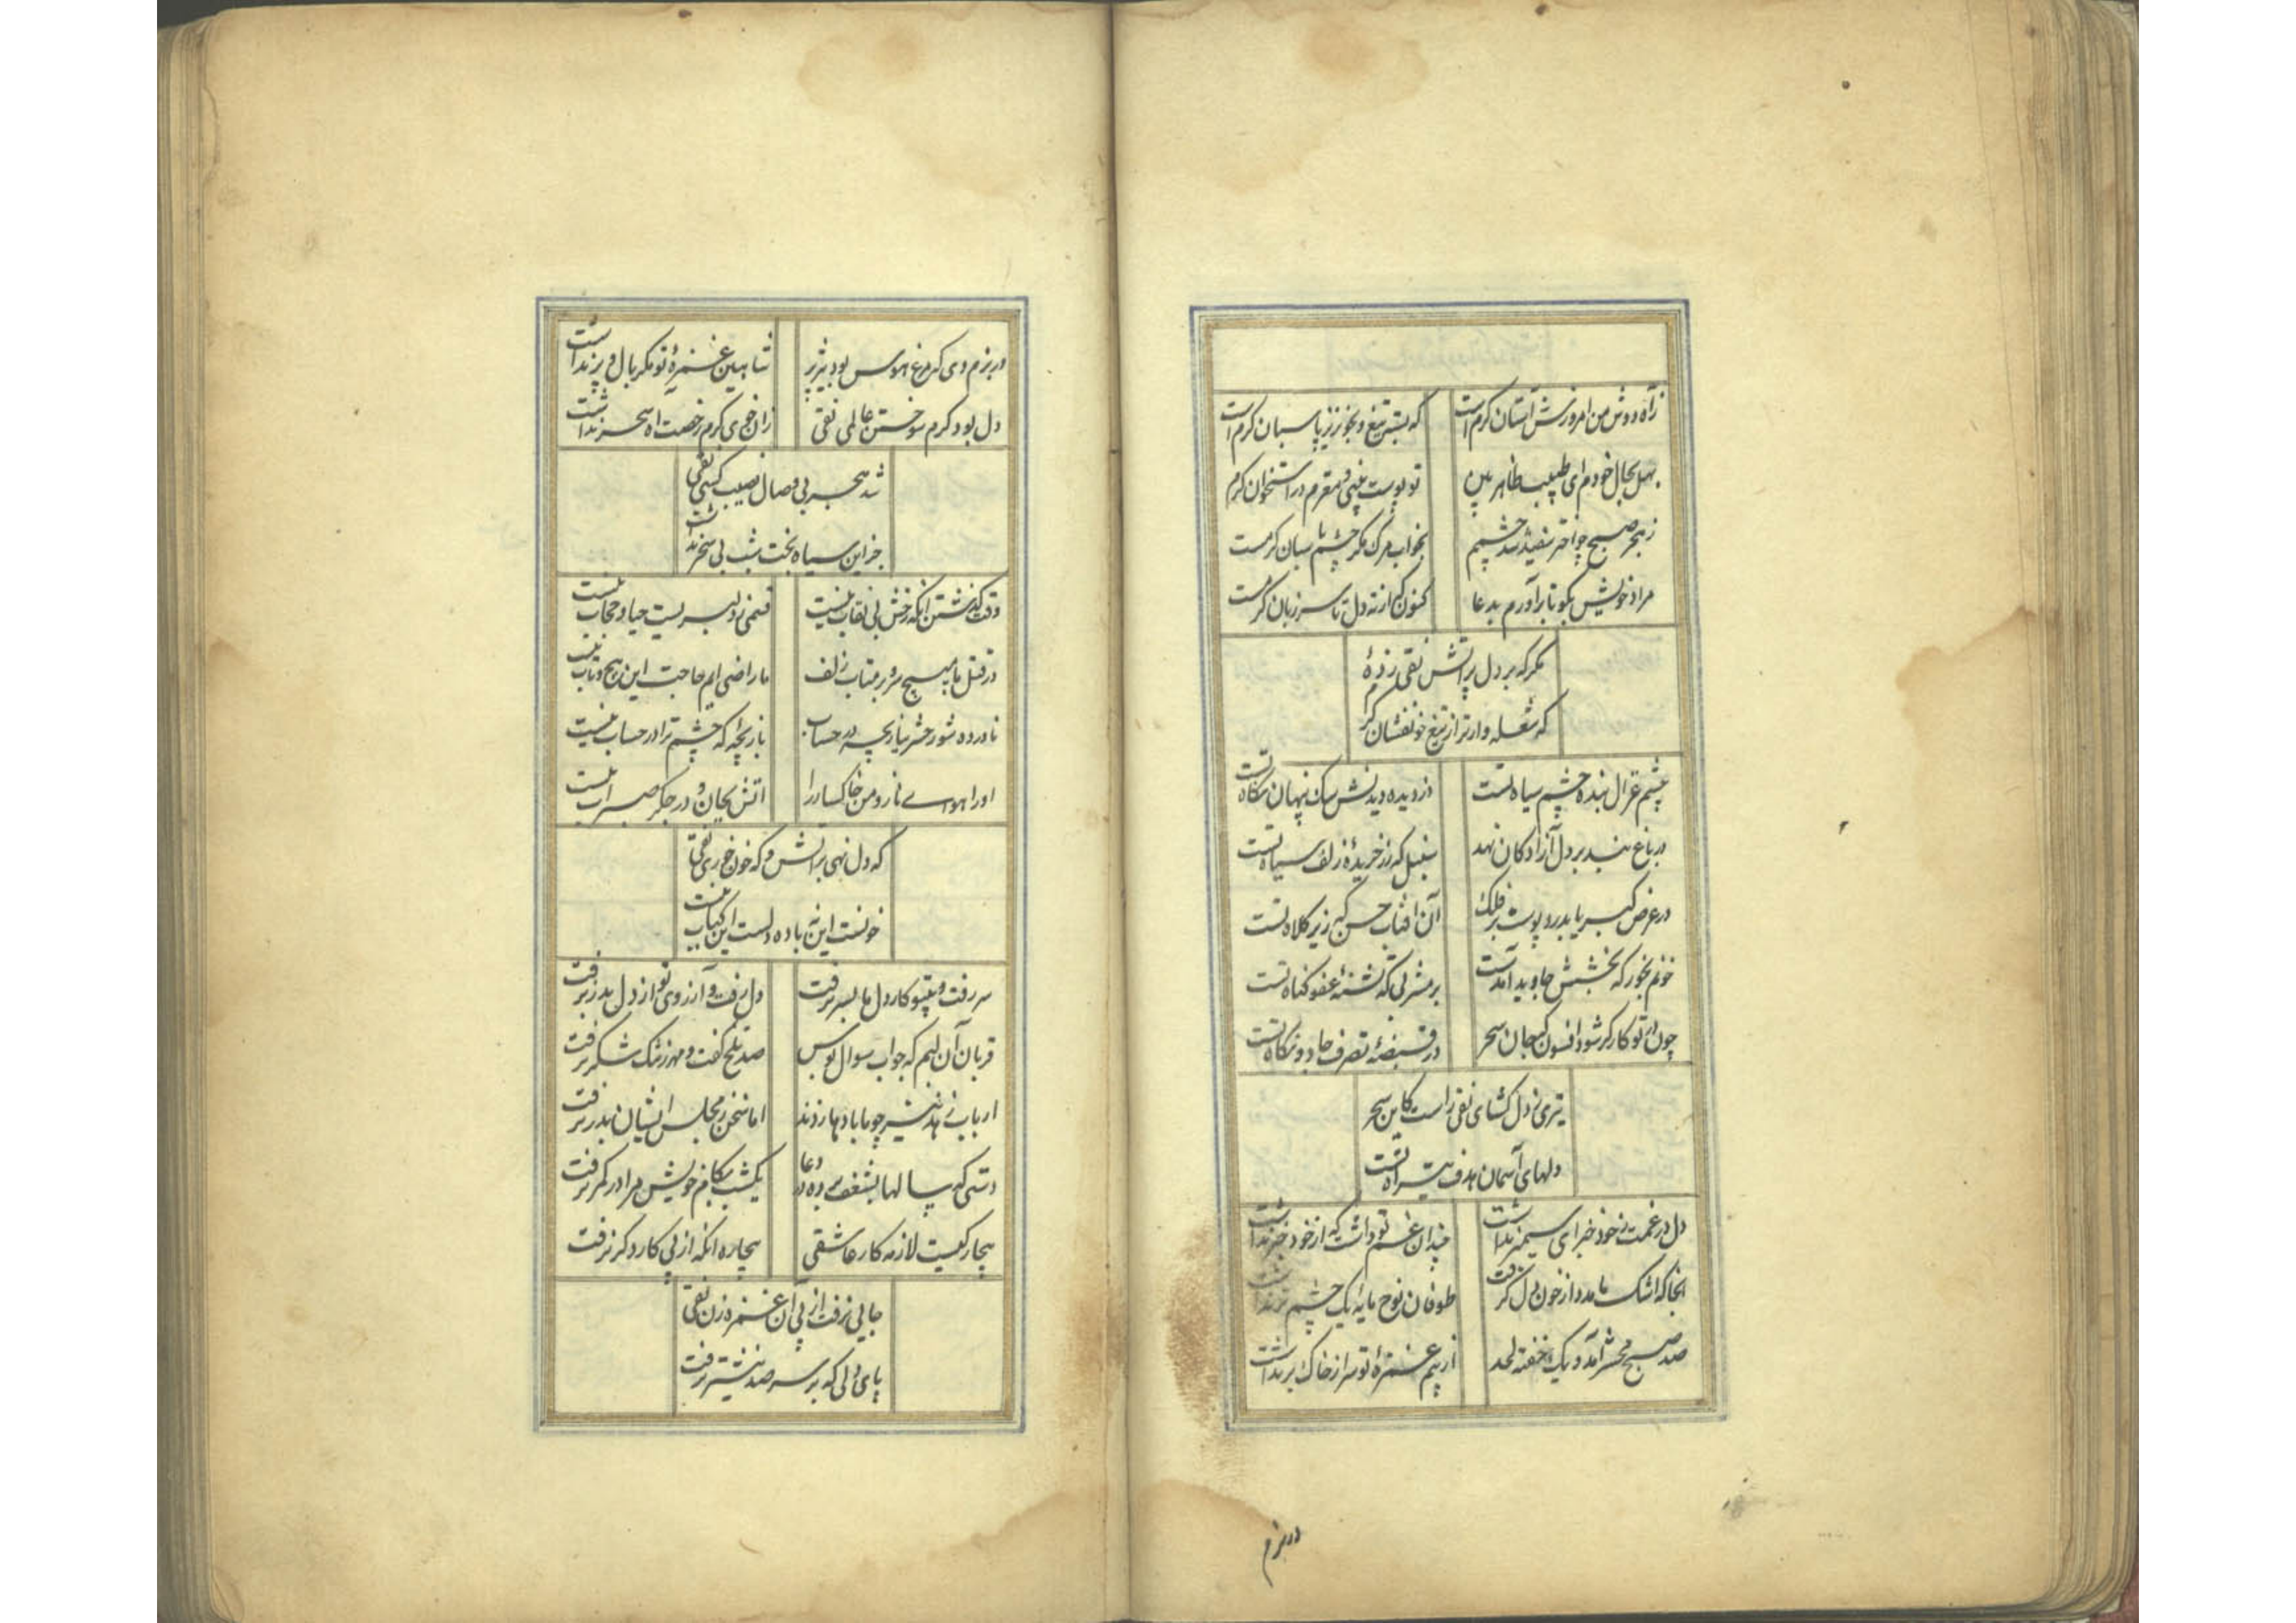 زآه دوش من امروزش آستان گرم است
که بستر تیغ و بخونریز پاسبان گرم است
بهل بحال خودم ای طبیب ظاهر بین
تو پوست بینی و مغزم در استخوان گرم
زهجر صبح چو اختر سفید شد چشمم
بخواب مرگ مگر چشم پاسبان گرمست
مراد خویش بگو تا برآورم بدعا
کنون که از ته دل تا سر زبان گرمست
مگر که بر دل پر آتش نقی زدهٔ
که شعله وار تر از تیغ خونفشان گرم
چشم غزال بنده چشم سیاه تست
دزدیده دیدنش سک پنهان نگاه تست
در باغ بند بر دل آزادکان نهد
سنبل که زر خریدهٔ زلف سیاه تست
در عرض کبریا بدرد پوست بر فلک
آن افتاب حسن که زیر کلاه تست
خونم بخور که بخشش جاوید آمدست
بر مشربی که تشنهٔ عفو گناه تست
چون از تو کارکر شود افسون که جان سحر
در قبضهٔ تصرف جادو نگاه تست
تیری ز دل کشای نقی راست کاین سحر
دلهای آسمان هدف تیر آه تست
دل در غمت ز خود خبر ای سیمبر نداشت
چندان غم تو داشت که از خود خبر نداشت
انجا که اشک ما مدد از خون دل گرفت
طوفان نوح مایهٔ یک چشم تر نداشت
صد صبح محشر آمد و یک خفته لحد
از بیم غمزهٔ تو سر از خاک بر نداشت
در بزم
در بزم وی که مرغ هوس بود تیز پر
شاهین غمزهٔ تو مکر بال و پر نداشت
دل بود گرم سوختن عالمی نقی
زان خوی گرم رخصت آه سحر نداشت
شد هجر بی وصال نصیب کسی نقی
جز این سیاه بخت شب بی سحر نداشت
وقت گذشتن انکه رخش بی نقاب نیست
قسمی ز دلبریست حیا و حجاب نیست
در قتل ما به هیچ مرو بر متاب زلف
ما راضی ایم حاجت این پیچ و تاب نیست
نادرده شور حشر نیازیچه در حساب
بازیچهٔ که چشم ترا در حساب نیست
او را هوای ناز و من خاکسار را
اتش بجان و در جکر صبر اب نیست
که دل نهی بر اتش و که خون خوری نقی
خونست این نه باده دلست این کباب نیست
سر رفت و بیتو کار دل ما بسر نرفت
دل رفت و آرزوی تو از دل بدر نرفت
قربان آن لبم که جواب سوال بوس
صد تلخ گفت و مهر ز تنک شکر نرفت
ارباب زهد نیز چو ما بادها زدند
اما سخن ز مجلس ایشان بدر نرفت
دستی که سالها بشغف سوده در دعا
یکشب بکام خویش مرا در کمر نرفت
بیچارکیست لازمه کار عاشقی
بیچاره انکه از پی کار دکر نرفت
جایی نرفت از پی آن غمزه زن نقی
پای دلی که بر سر صد نیشتر نرفت